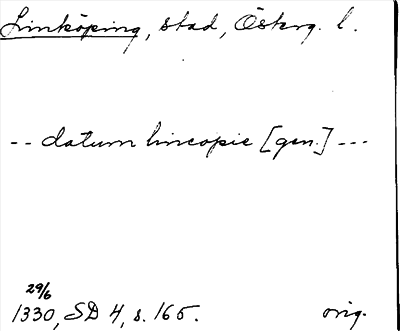 Linköping, stad, Östrg. l.
-- datum lincopie [gen.] ---
29/6
1330, SD 4, s. 165. orig.